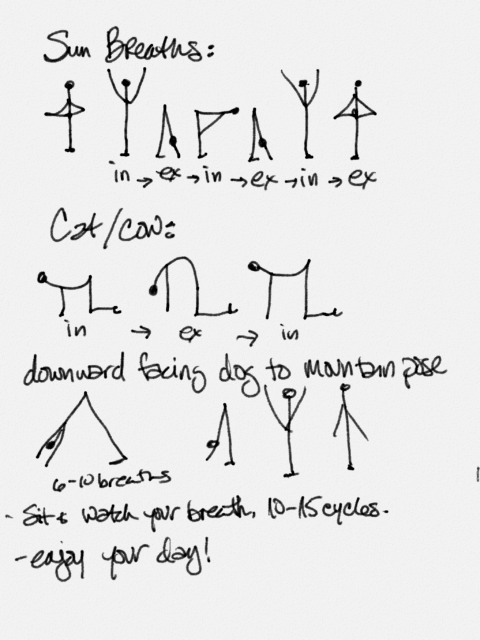 Sun Breaths:
in → ex → in → ex → in → ex
Cat/cow:
in → ex → in
downward facing dog to mountain pose
6-10 breaths
- Sit & watch your breath, 10-15 cycles.
- enjoy your day!